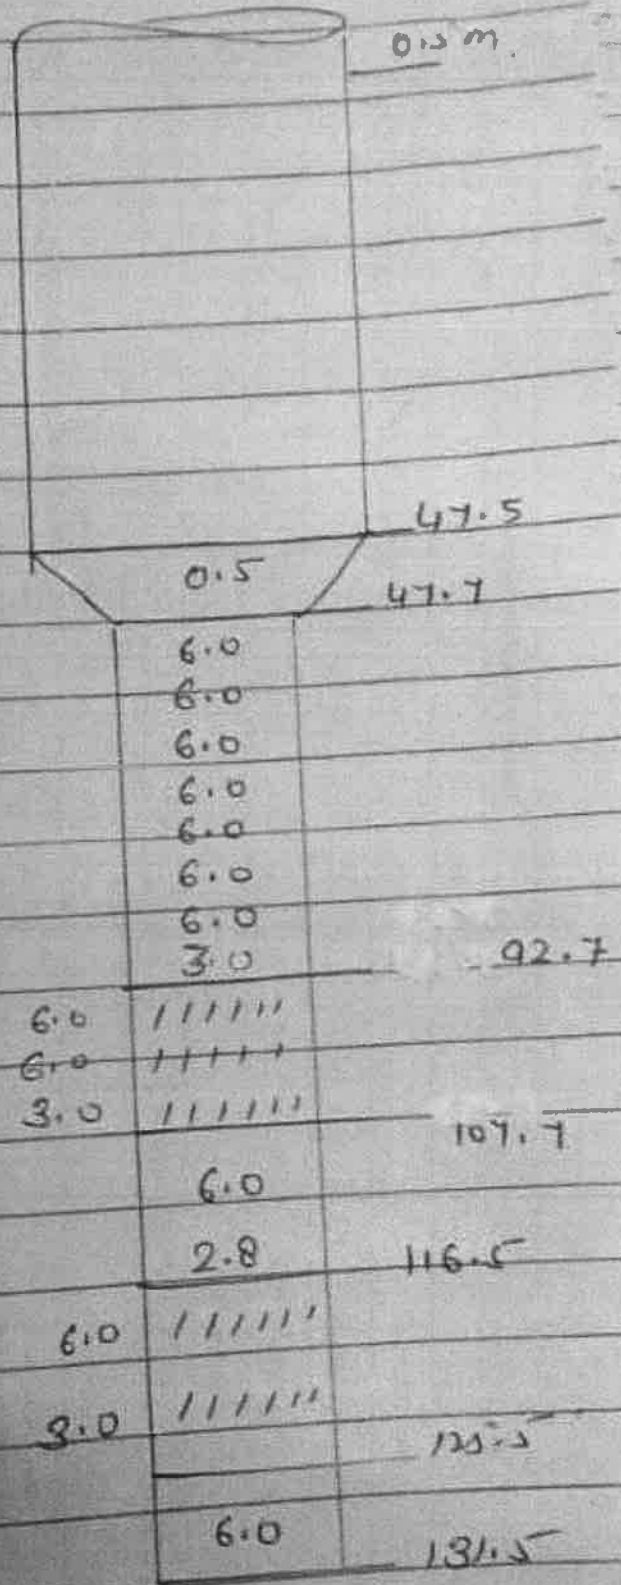 0.5 m.
47.5
0.5
47.7
6.0
6.0
6.0
6.0
6.0
6.0
6.0
3.0 92.7
6.0 ||||||
6.0 |||||
3.0 ||||||
107.7
6.0
2.8 116.5
6.0 ||||||
3.0 ||||||
125.5
6.0 131.5